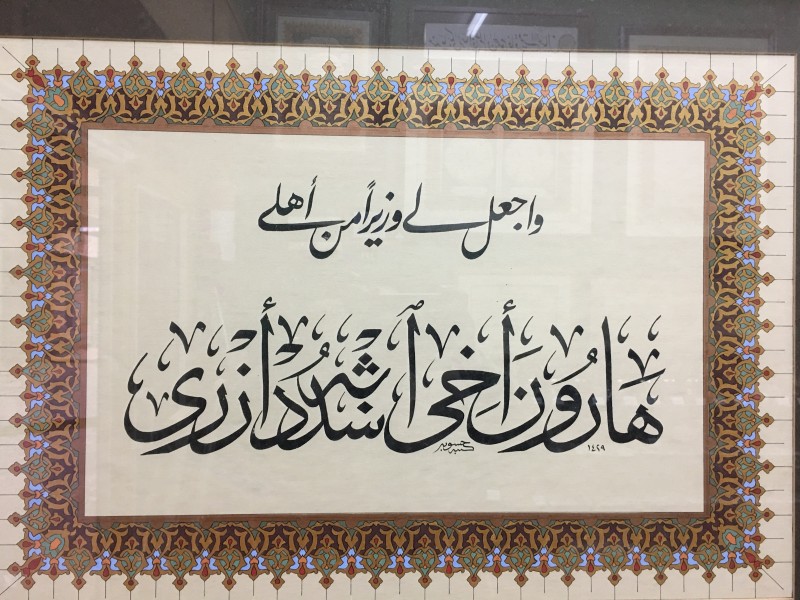 واجعل لي وزيراً من أهلي
هَارُونَ أَخِي ٱشْدُدْ أَزْرِي
١٤٢٩